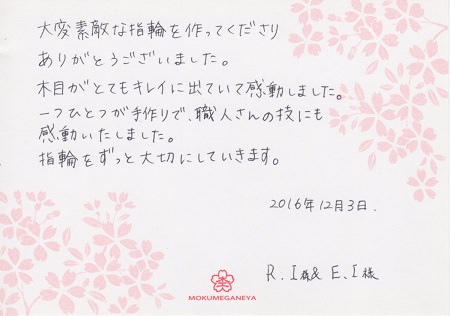 大変素敵な指輪を作ってくださり
ありがとうございました。
木目がとてもキレイに出ていて感動しました。
一つひとつが手作りで、職人さんの技にも
感動いたしました。
指輪をずっと大切にしていきます。
2016年12月3日.
R.I様& E.I様
MOKUMEGANEYA